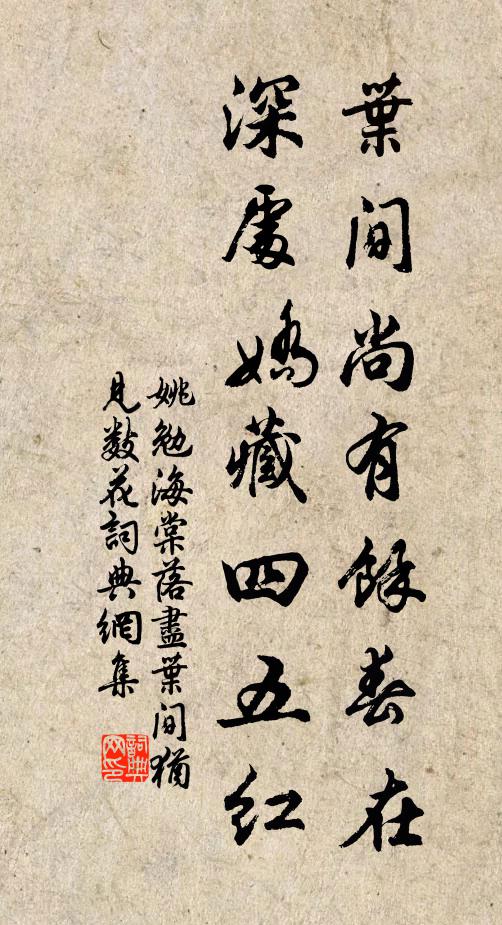 葉间尚有餘春在
深處嬌藏四五红
姚勉海棠落盡葉间猶
見數花詞典網集
詞典
网印